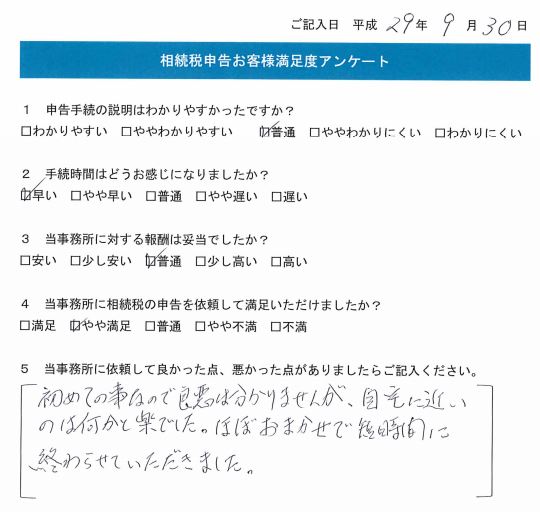 ご記入日 平成 29年 9月30日
相続税申告お客様満足度アンケート
1 申告手続の説明はわかりやすかったですか？
□わかりやすい □ややわかりやすい ☑普通 □ややわかりにくい □わかりにくい
2 手続時間はどうお感じになりましたか？
☑早い □やや早い □普通 □やや遅い □遅い
3 当事務所に対する報酬は妥当でしたか？
□安い □少し安い ☑普通 □少し高い □高い
4 当事務所に相続税の申告を依頼して満足いただけましたか？
□満足 ☑やや満足 □普通 □やや不満 □不満
5 当事務所に依頼して良かった点、悪かった点がありましたらご記入ください。
初めての事なので良悪は分かりませんが、自宅に近い
のは何かと楽でした。ほぼおまかせで短時間に
終わらせていただきました。